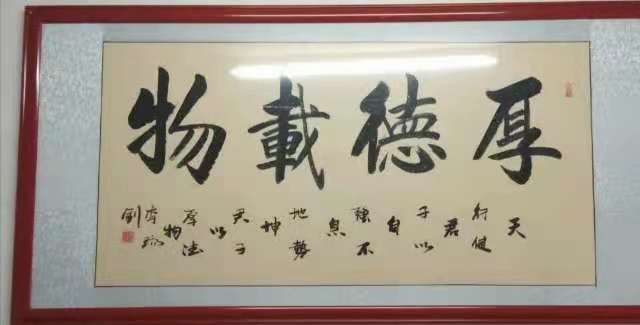 厚德載物
天
行健
君
子以
自
強不
息
地勢
坤
君子
以
厚德
物
劉